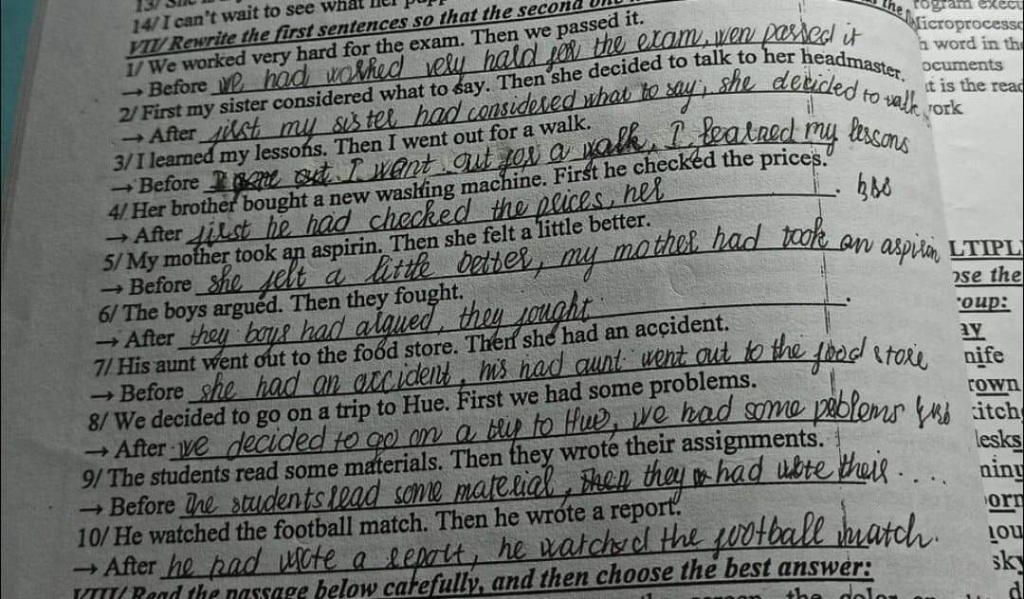 14/ I can't wait to see what her
VII/ Rewrite the first sentences so that the second one
1/ We worked very hard for the exam. Then we passed it.
→ Before we had worked very hald for the exam, wen passed it
2/ First my sister considered what to say. Then she decided to talk to her headmaster.
→ After first my sister had considered what to say, she decided to walk
3/ I learned my lessons. Then I went out for a walk.
→ Before I want out for a walk, I learned my lessons
4/ Her brother bought a new washing machine. First he checked the prices.
→ After first he had checked the prices, her
5/ My mother took an aspirin. Then she felt a little better.
→ Before she felt a little better, my mother had took an aspirin
6/ The boys argued. Then they fought.
→ After they boys had algued, they fought.
7/ His aunt went out to the food store. Then she had an accident.
→ Before she had an accident, his had aunt went out to the food store
8/ We decided to go on a trip to Hue. First we had some problems.
→ After we decided to go on a trip to Hue, we had some peblems
9/ The students read some materials. Then they wrote their assignments.
→ Before The students read some material, then they had wrote their ....
10/ He watched the football match. Then he wrote a report.
→ After he had wrote a report, he watched the football match.
VIII/ Read the passage below carefully, and then choose the best answer:
the
rogram execu
Microprocesso
word in the
ocuments
t is the read
ork
LTIPL
ose the
oup:
ay
nife
rown
itch
lesks
niny
orn
hou
sky